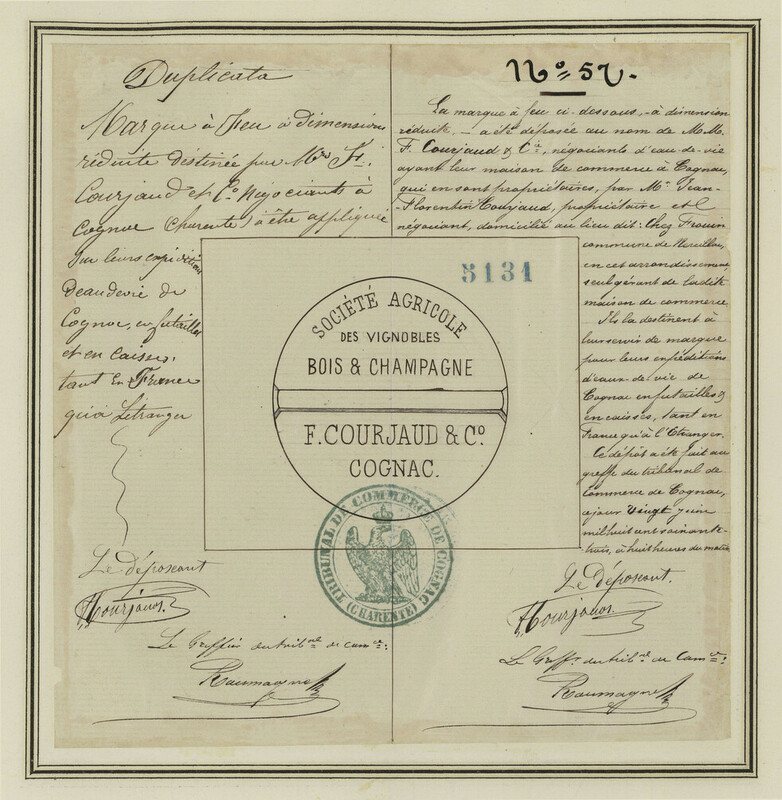 Duplicata
Marque à Feu à dimensions
réduite destinée par Mrs F.
Courjaud et Cie Négociants à
Cognac (Charente) à être appliquée
sur leurs expéditions
d'eau de vie de
Cognac, en futailles
et en caisses,
tant en France
qu'à L'étranger
Le déposant
F. Courjaud
Le Greffier du tribal de comce:
Roumagne
No 52.
La marque à feu ci-dessous, - à dimension
réduite, - a été déposée au nom de M.M.
F. Courjaud & Cie, négociants d'eau-de-vie
ayant leur maison de commerce à Cognac,
qui en sont propriétaires, par Mr Jean-
Florentin Courjaud, propriétaire et
négociant, domicilié au lieu dit: Chez Frouin
commune de
en cet arrondissement,
seul gérant de ladite
maison de commerce
Ils la destinent à
leur servir de marque
pour leurs expéditions
d'eaux-de-vie de
Cognac en futailles &
en caisses, tant en
France qu'à l'Etranger.
Ce dépôt a été fait au
greffe du tribunal de
Commerce de Cognac,
ce jour Vingt juin
mil huit cent soixante-
trois, à huit heures du matin
Le déposant.
F. Courjaud
Le Greff. du tribal de Comce:
Roumagne
5131
SOCIÉTÉ AGRICOLE
DES VIGNOBLES
BOIS & CHAMPAGNE
F. COURJAUD & Co.
COGNAC.
TRIBUNAL DE COMMERCE DE COGNAC
(CHARENTE)